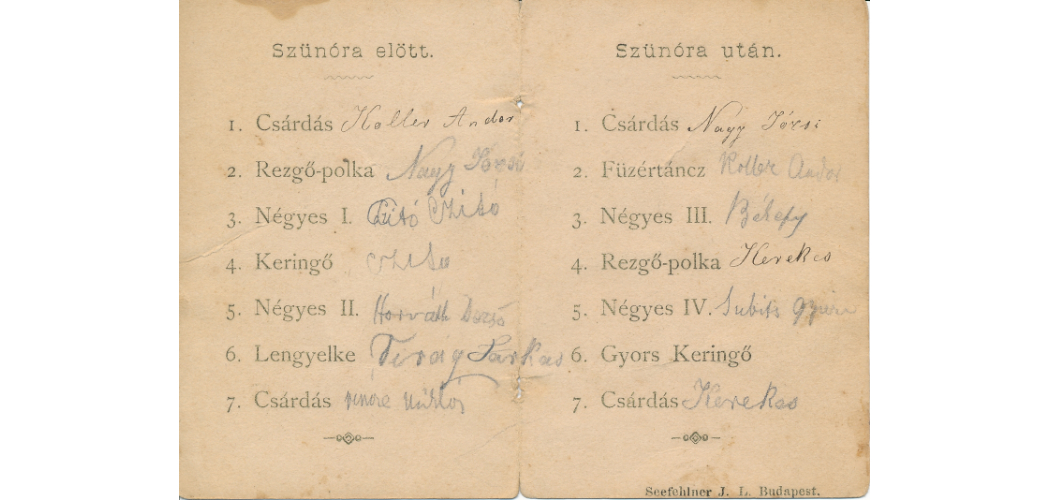 Szünóra elött.
1. Csárdás Koller Andor
2. Rezgő-polka Nagy Józsi
3. Négyes I.
4. Keringő
5. Négyes II. Horváth Dezső
6. Lengyelke Virág Farkas
7. Csárdás Miklós
Szünóra után.
1. Csárdás Nagy Józsi
2. Füzértáncz Koller Andor
3. Négyes III. Békefy
4. Rezgő-polka Kerekes
5. Négyes IV. Subits
6. Gyors Keringő
7. Csárdás Kerekes
Seefehlner J. L. Budapest.